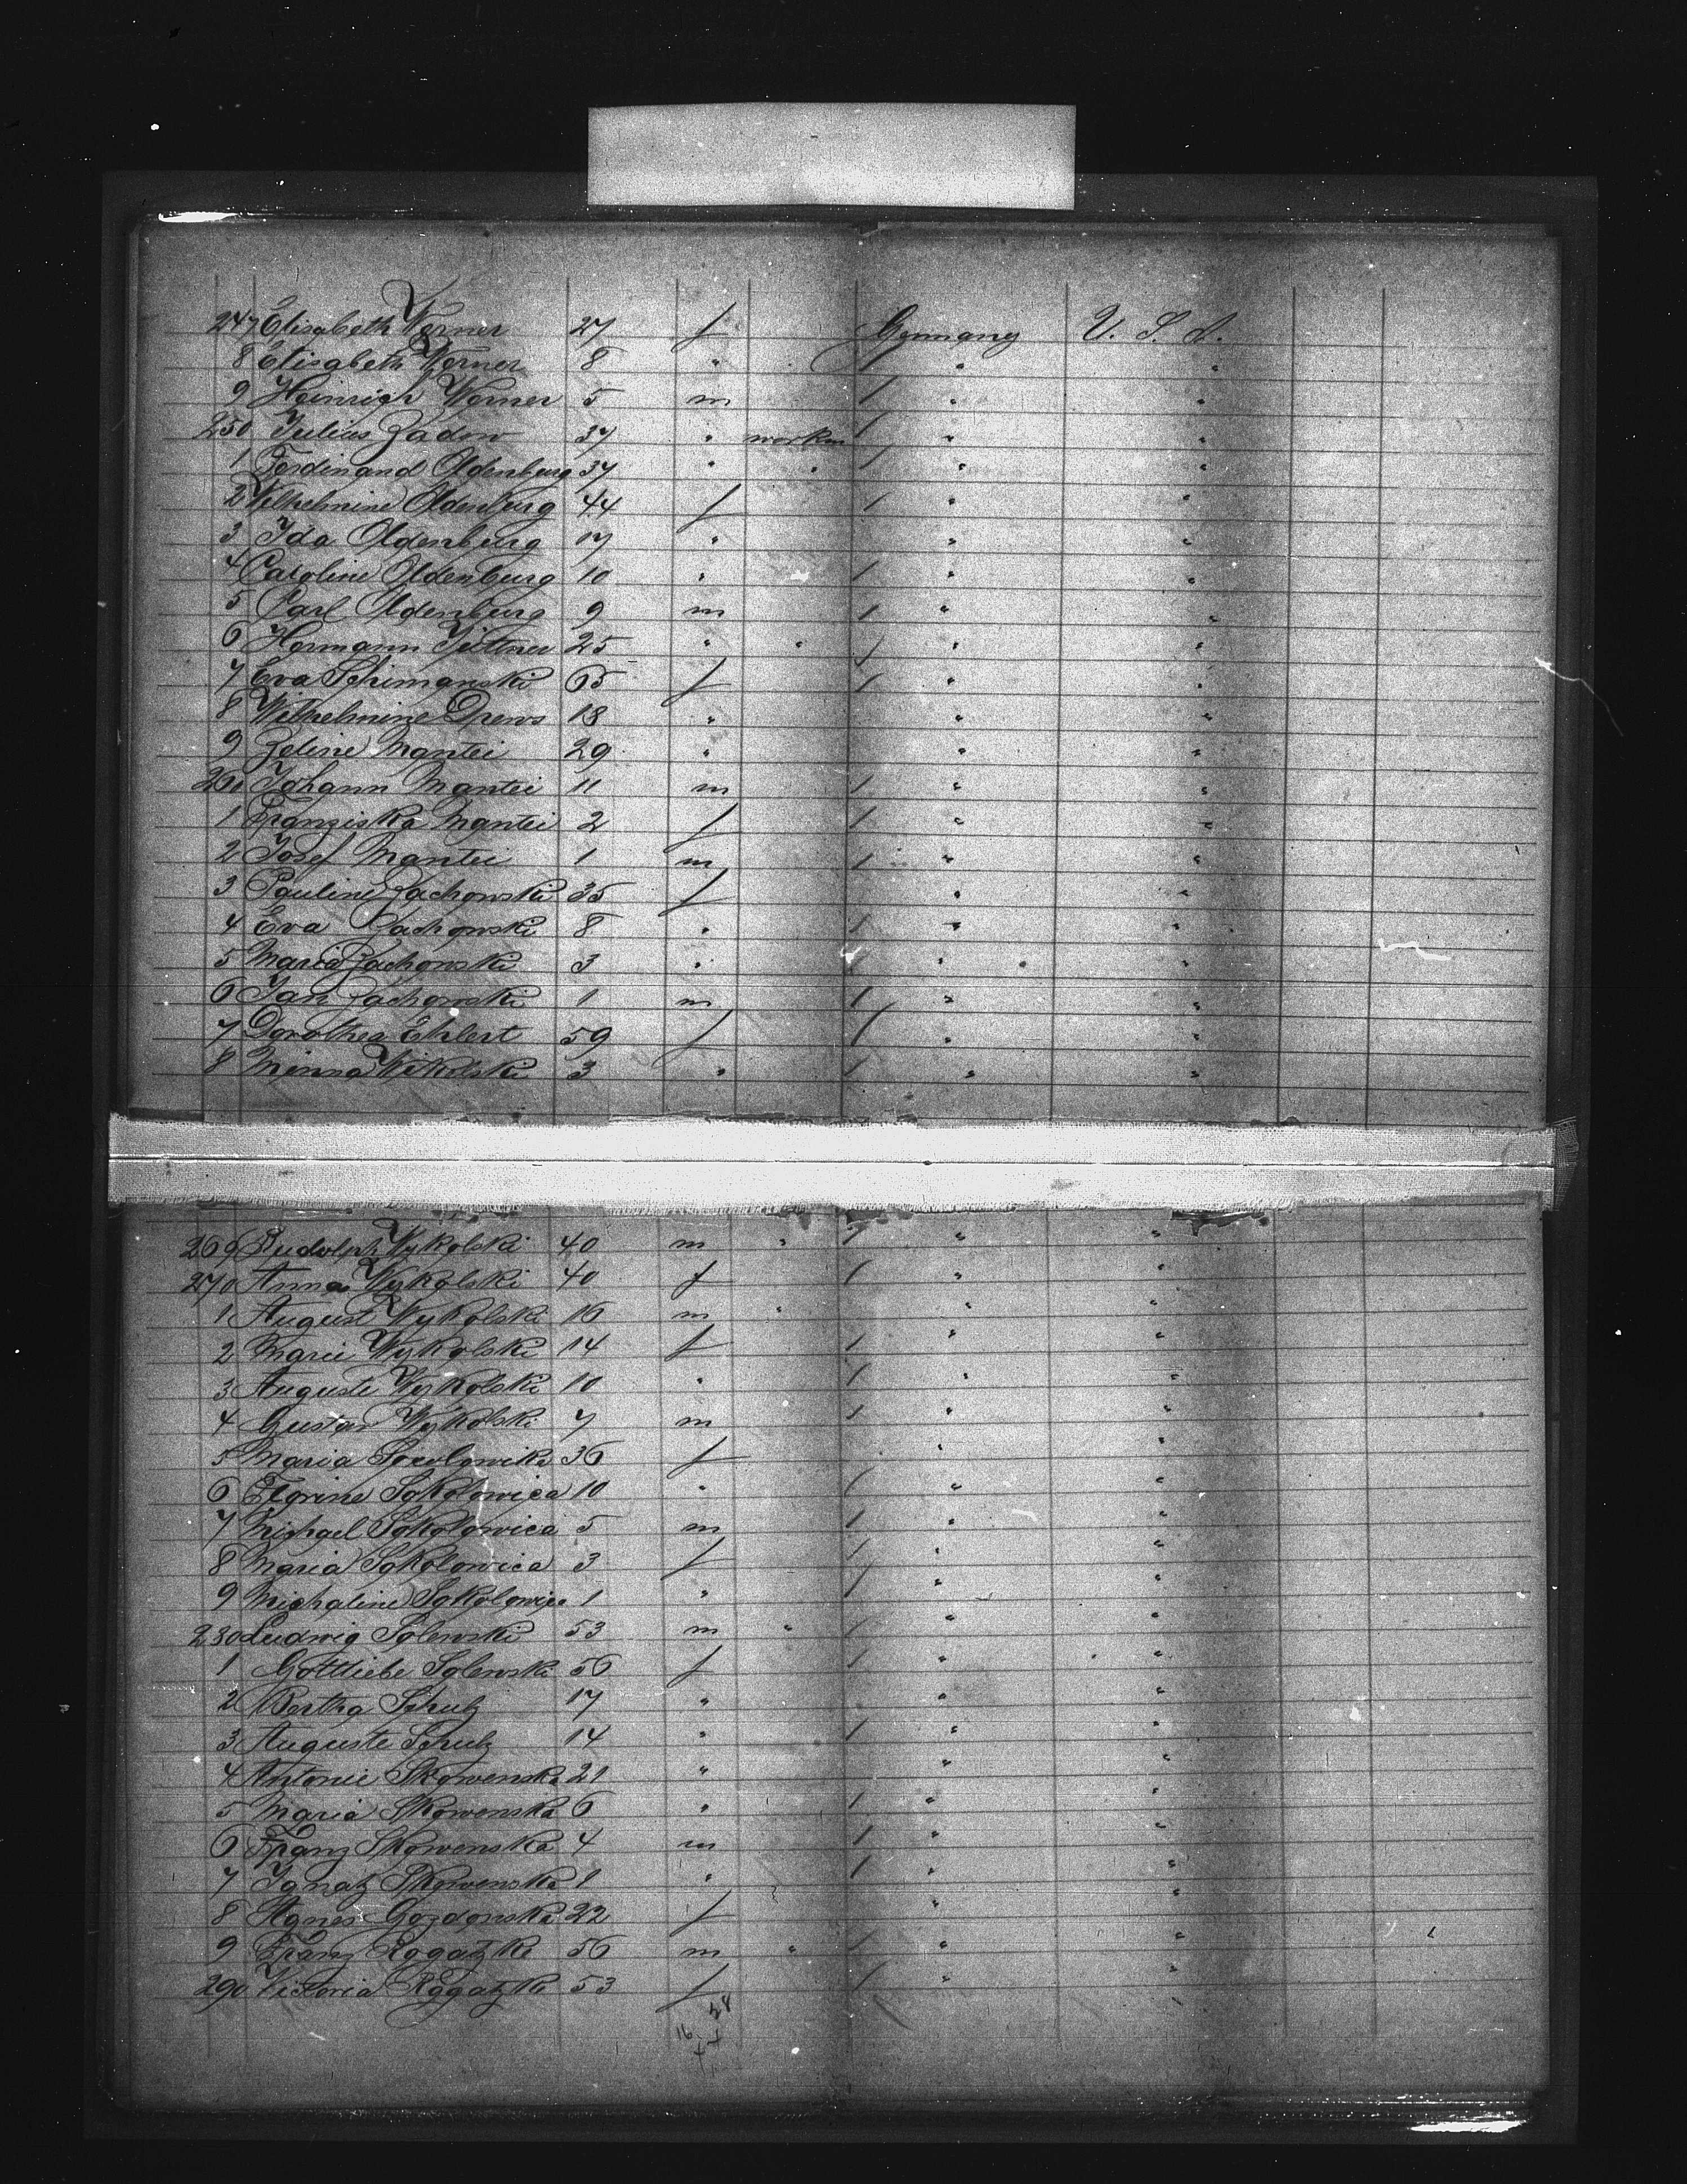 247 Elisabeth Werner 27 f Germany U. S. A.
8 Elisabeth Werner 8 " " "
9 Heinrich Werner 5 m " "
250 Julius Zadow 37 " workm " "
1 Ferdinand Oldenburg 37 " " " "
2 Wilhelmine Oldenburg 44 f " "
3 Ida Oldenburg 17 " " "
4 Caroline Oldenburg 10 " " "
5 Carl Oldenburg 9 m " "
6 Hermann Jittner 25 " " " "
7 Eva Schimanski 65 f " "
8 Wilhelmine Drews 18 " " "
9 Zeline Mantei 29 " " "
260 Johann Mantei 11 m " "
1 Franziska Mantei 2 f " "
2 Josef Mantei 1 m " "
3 Pauline Zachowski 35 f " "
4 Eva Zachowski 8 " " "
5 Maria Zachowski 3 " " "
6 Jan Zachowski 1 m " "
7 Dorothea Ehlert 59 f "
8 Minna Wikolski 3 " " "
269 Rudolph Wykolski 40 m " " "
270 Anna Wykolski 40 f " "
1 August Wykolski 16 m " " "
2 Marie Wykolski 14 f " "
3 Auguste Wykolski 10 " " "
4 Gustav Wykolski 7 m " "
5 Maria 36 f " "
6 Florine Sokolowica 10 " " "
7 Michael Sokolowica 5 m " "
8 Maria Sokolowica 3 f " "
9 Michaline Sokolowica 1 " " "
230 Ludwig Solewski 53 m " " "
1 Gottliebe Solewski 56 f " "
2 Bertha Schulz 17 " " "
3 Auguste Schulz 14 " " "
4 Antonie Skowenska 21 " " "
5 Maria Skowenska 6 " " "
6 Franz Skowenska 4 m " "
7 Ignatz Skowenska 1 " " "
8 Agnes Gozdonska 22 f " "
9 Franz Rogatzki 56 m " " "
290 Victoria Rogatzki 53 f " "
16